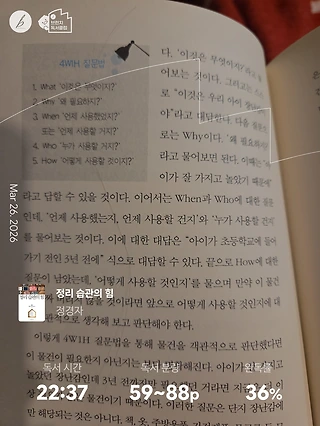 번만지
독서클럽
4W1H 질문법
1. What '이것은 무엇이지?'
2. Why '왜 필요하지?'
3. When '언제 사용했었지?'
또는 '언제 사용할 거지?'
4. Who '누가 사용할 거지?'
5. How '어떻게 사용할 것이지?'
다. '이것은 무엇이지?'
어보는 것이다. 그러고는
로 "이것은 우리 아이 장난감이
야"라고 대답한다. 다음 질문으
로는 Why이다. '왜 필요하지?'
라고 물어보면 된다. 이때는
이가 잘 가지고 놀았기 때문에"
라고 답할 수 있을 것이다. 이어서는 When과 Who에 대한 질문
인데, '언제 사용했는지, 언제 사용할 건지'와 '누가 사용할 건지'
를 물어보는 것이다. 이에 대한 대답은 "아이가 초등학교에 들어
가기 전인 3년 전에" 식으로 대답할 수 있다. 끝으로 How에 대한
질문이 남았는데, '어떻게 사용할 것인지'를 물으며 만약 이 물건
않을 것이라면 앞으로 어떻게 사용할 것인지에 대
관적으로 생각해 보고 판단해야 한다.
이렇게 4W1H 질문법을 통해 물건을 객관적으로 판단했다면
이 물건이 필요한지 아닌지는
놀았던 장난감인데 3년 전까지만
물건이기 때문이다. 이러한 질문은 단지 장난감에
만 해당되는 것은 아니다. 책, 옷, 주방용품
Mar 26, 2026
정리 습관의 힘
정경자
독서 시간
22:37
독서 분량
59~88p
완독률
36%